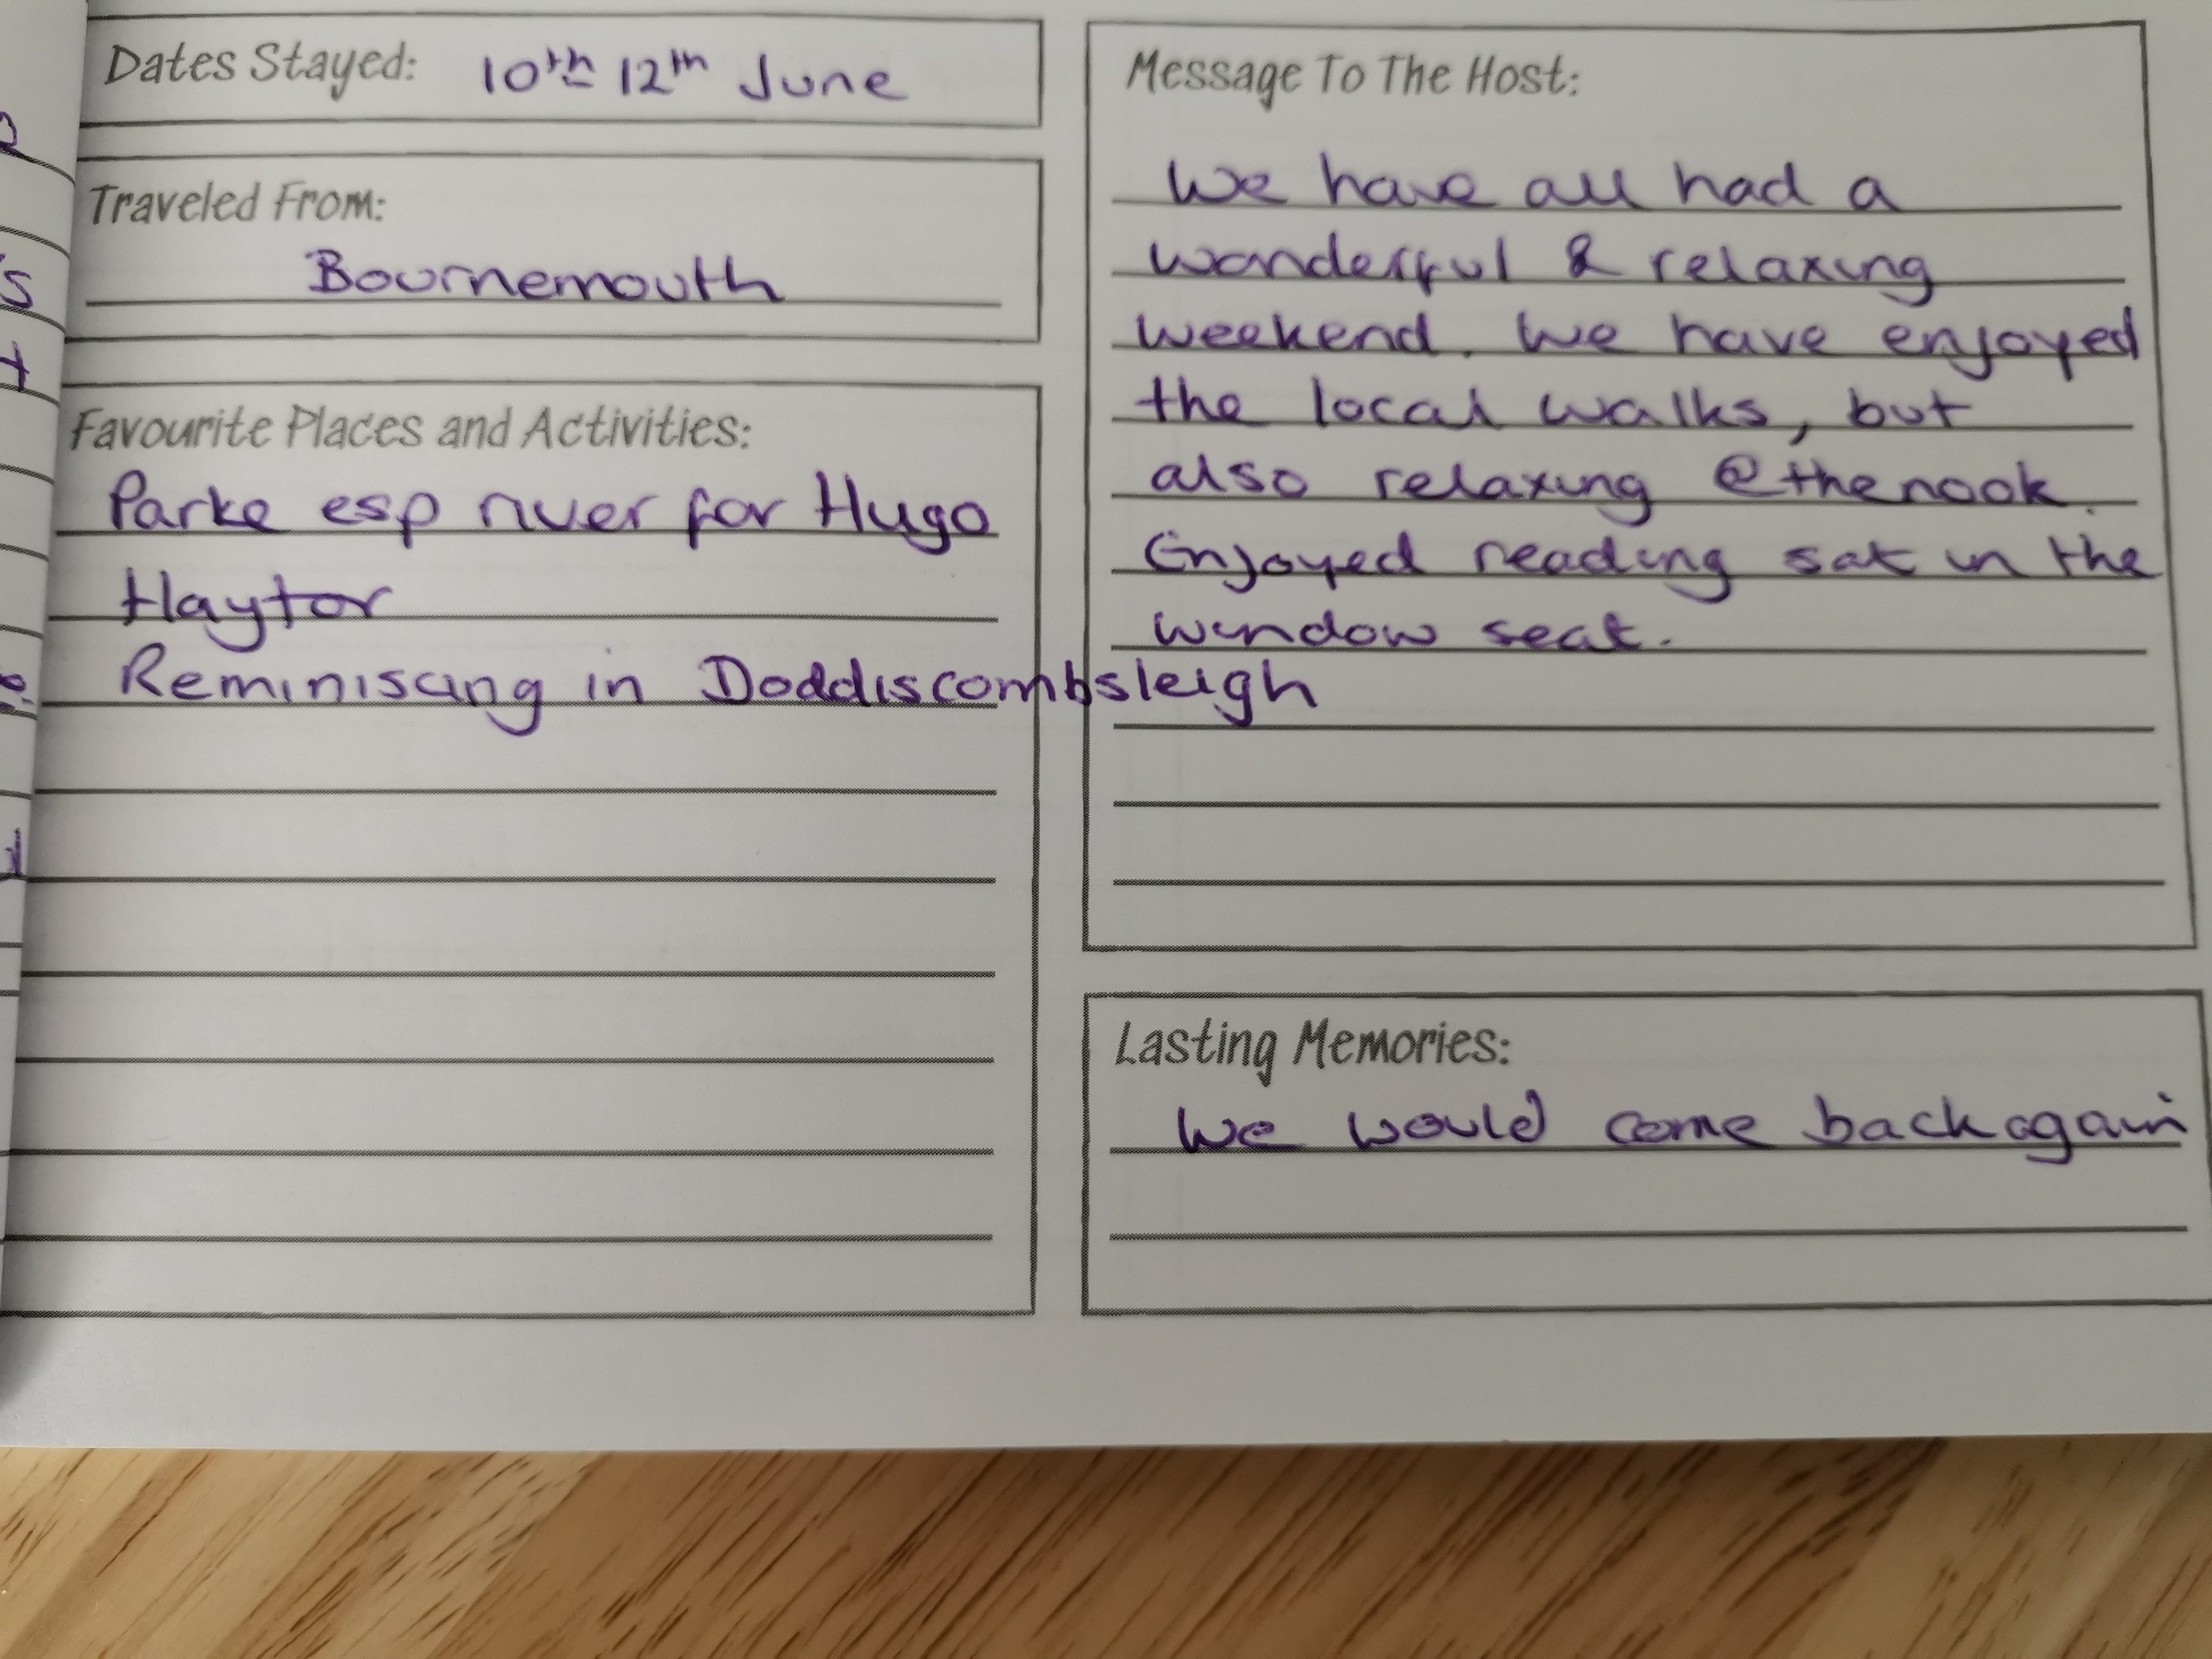 Dates Stayed: 10th - 12th June
Traveled From:
Bournemouth
Favourite Places and Activities:
Parke esp river for Hugo
Haytor
Reminiscing in Doddiscombsleigh
Message To The Host:
We have all had a
wonderful & relaxing
weekend. We have enjoyed
the local walks, but
also relaxing @thenook.
Enjoyed reading sat in the
window seat.
Lasting Memories:
We would come back again